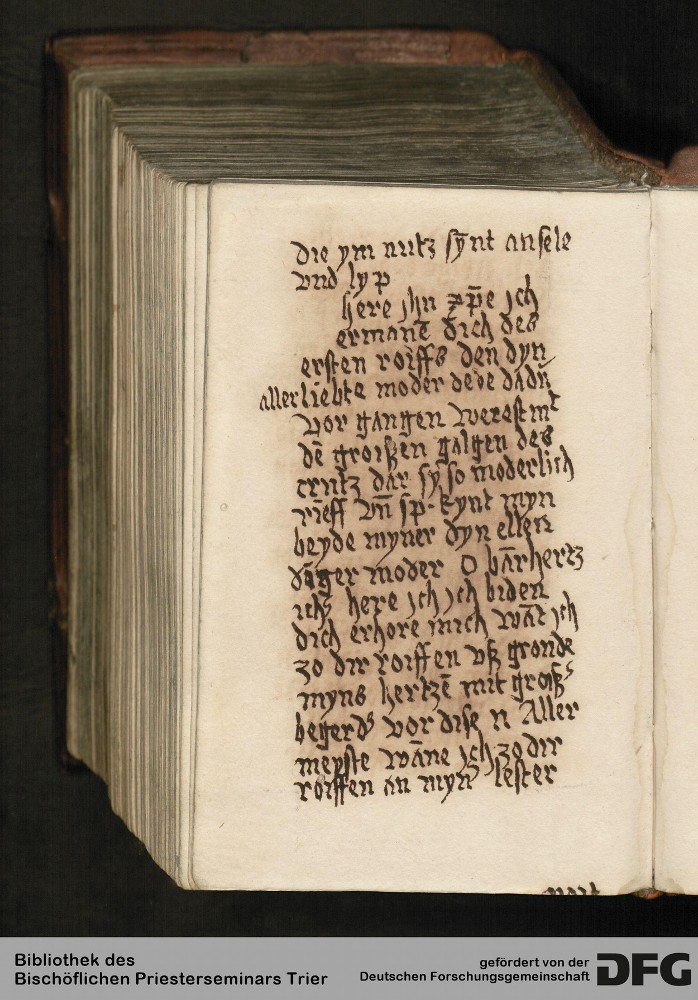 die ym nutz sÿnt an sele
vnd lyp
here ihu xp̄e ich
ermanē dich des
ersten roiffs den dyn
aller liebte moder dede da du
vor gangen werest mit
dē groißen galgen des
crutz dar sy so moderlich
rieff vn̄ sp̄ kynt myn
beyde myner dyn ellen
moder O bārhertz
here ich ich biden
dich erhore mich wāt ich
zo dir roiffen vß gronde
myns hertzē mit groiß
begerd vor dise n Aller
meyste wāne ich zo dir
roiffen an myn lester
Bibliothek des
Bischöflichen Priesterseminars Trier
gefördert von der
Deutschen Forschungsgemeinschaft
DFG